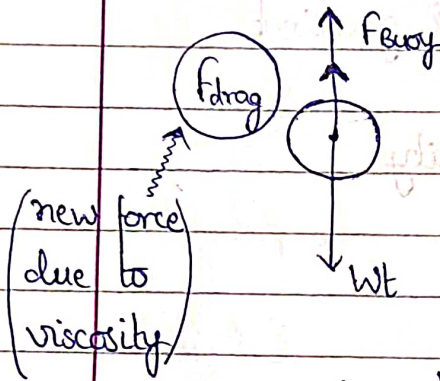 FBuoy
Fdrag
(new force
due to
viscosity)
Wt